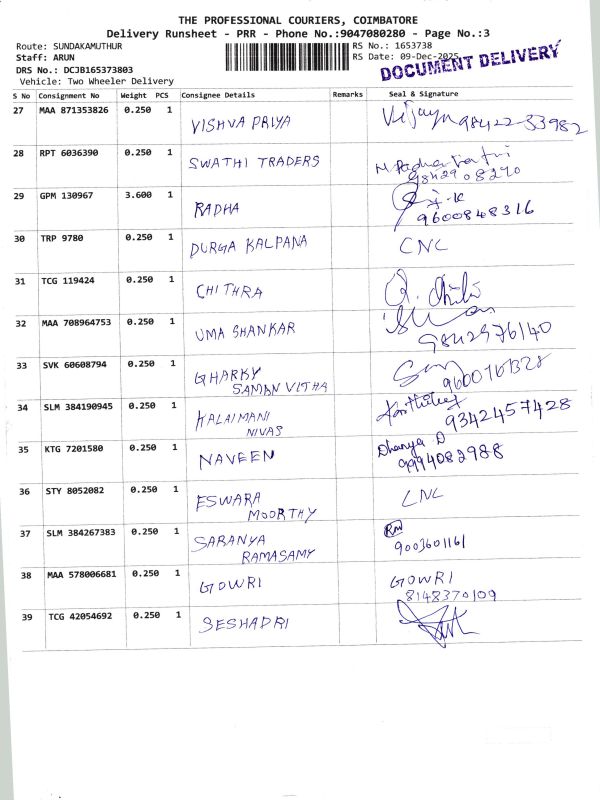 THE PROFESSIONAL COURIERS, COIMBATORE
Delivery Runsheet - PRR - Phone No.:9047080280 - Page No.:3
Route: SUNDAKAMUTHUR RS No.: 1653738
Staff: ARUN RS Date: 09-Dec-2025
DRS No.: DCJB165373803 DOCUMENT DELIVERY
Vehicle: Two Wheeler Delivery
S No Consignment No Weight PCS Consignee Details Remarks Seal & Signature
27 MAA 871353826 0.250 1 VISHVA PRIYA Vijaya 98422-33982
28 RPT 6036390 0.250 1 SWATHI TRADERS
9842908290
29 GPM 130967 3.600 1 RADHA
9600848316
30 TRP 9780 0.250 1 DURGA KALPANA CNC
31 TCG 119424 0.250 1 CHITHRA
32 MAA 708964753 0.250 1 UMA SHANKAR
9842976140
33 SVK 60608794 0.250 1 GHARKY
SAMAN VITHA
34 SLM 384190945 0.250 1 KALAIMANI
NIVAS 9342457428
35 KTG 7201580 0.250 1 NAVEEN Dhanya D
9994082988
36 STY 8052082 0.250 1 ESWARA CNC
MOORTHY
37 SLM 384267383 0.250 1 SARANYA
RAMASAMY 9003601161
38 MAA 578006681 0.250 1 GOWRI GOWRI
8148370109
39 TCG 42054692 0.250 1 SESHADRI